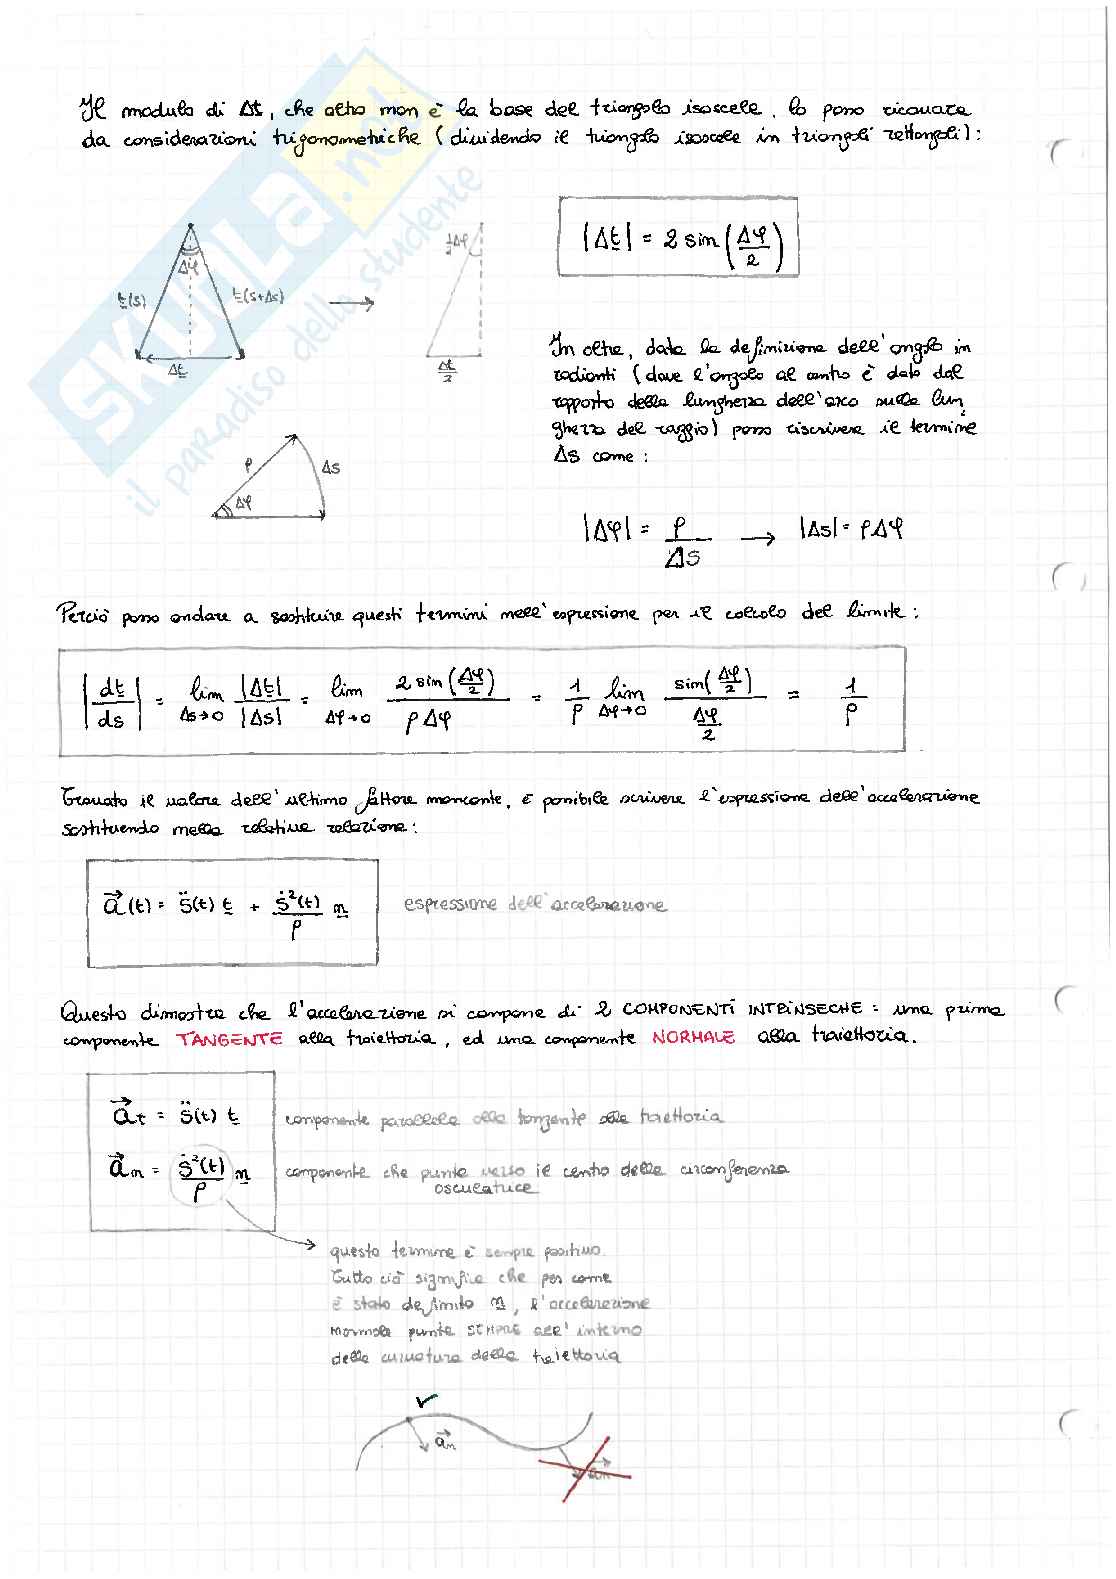 SKUOLA.net
il paradiso dello studente
Il modulo di Δt, che altro non è la base del triangolo isoscele, lo posso ricavare
da considerazioni trigonometriche (dividendo il triangolo isoscele in triangoli rettangoli):
Δφ
t(s)
t(s+Δs)
Δt
½Δφ
Δt/2
|Δt| = 2 sin(Δφ/2)
In oltre, data la definizione dell'angolo in
radianti (dove l'angolo al centro è dato dal
rapporto della lunghezza dell'arco sulla lun
ghezza del raggio) posso riscrivere il termine
Δs come:
ρ
Δs
Δφ
|Δφ| = ρ/Δs → |Δs| = ρΔφ
Perciò posso andare a sostituire questi termini nell'espressione per il calcolo del limite:
|dt/ds| = lim Δs→0 |Δt|/|Δs| = lim Δφ→0 2 sin(Δφ/2)/ρΔφ = 1/ρ lim Δφ→0 sin(Δφ/2)/Δφ/2 = 1/ρ
Trovato il valore dell'ultimo fattore mancante, è possibile scrivere l'espressione dell'accelerazione
sostituendo nella relativa relazione:
a⃗(t) = s̈(t) t + ṡ²(t)/ρ n
espressione dell'accelerazione
Questo dimostra che l'accelerazione si compone di 2 COMPONENTI INTRINSECHE: una prima
componente TANGENTE alla traiettoria, ed una componente NORMALE alla traiettoria.
a⃗t = s̈(t) t
componente parallela alla tangente alla traiettoria
a⃗n = ṡ²(t)/ρ n
componente che punta verso il centro della circonferenza
osculatrice
questo termine è sempre positivo.
Tutto ciò significa che per come
è stato definito n, l'accelerazione
normale punta SEMPRE all'interno
della curvatura della traiettoria
a⃗n
a⃗n